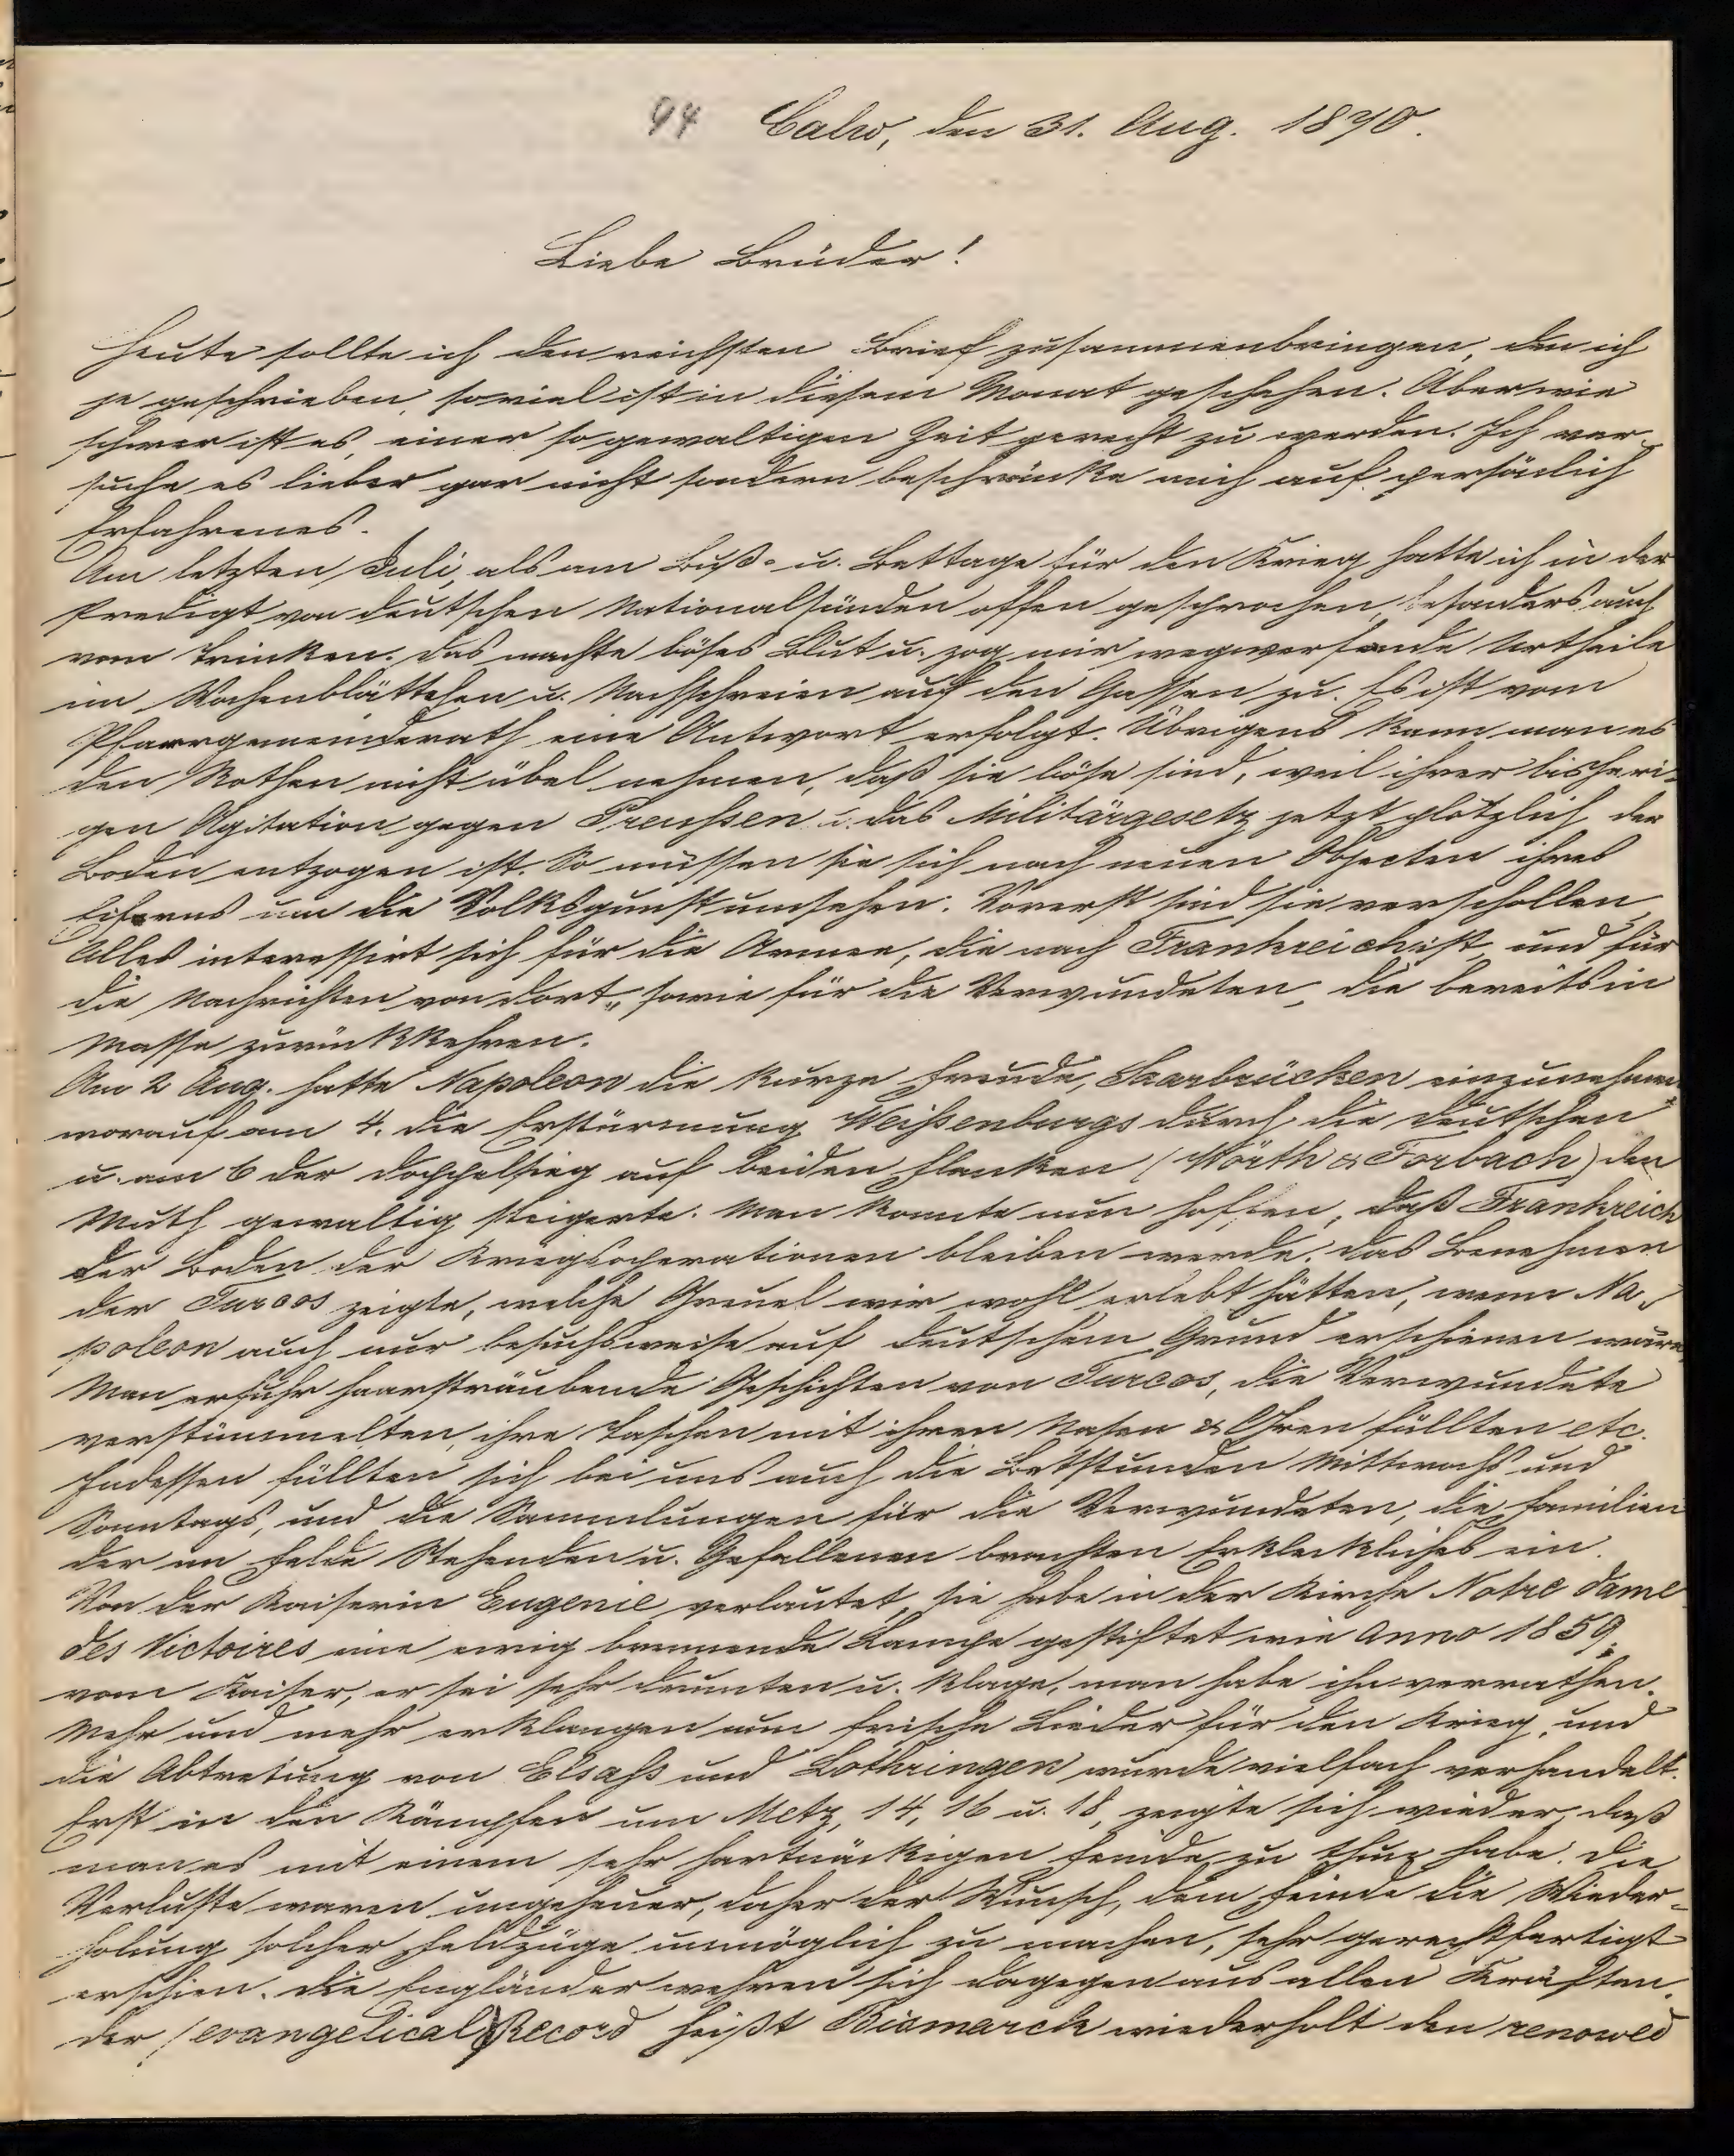 94 Calw, den 31. Aug. 1870.
Liebe Brüder!
Heute sollte ich den reichsten Brief zusammenbringen, den ich
je geschrieben, so viel ist in diesem Monat geschehen. Aber wie
schwer ist es, einer so gewaltigen Zeit gerecht zu werden. Ich ver-
suche es lieber gar nicht sondern beschränke mich auf persönlich
Erfahrenes.
Am letzten Juli, als am Buß- u. Bettage für den Krieg hatte ich in der
Predigt von deutschen Nationalsünden offen gesprochen, besonders auch
vom Trinken. Das machte böses Blut u. zog mir wegwerfende Urtheile
im Wochenblättchen u. Nachschreien auf den Gassen zu. Es ist vom
Pfarrgemeinderath eine Antwort erfolgt. Übrigens kann man es
den Rothen nicht übel nehmen, daß sie böse sind, weil ihrer bisheri-
gen Agitation gegen Preußen u. das Militärgesetz jetzt plötzlich der
Boden entzogen ist. So müssen sie sich nach neuen Objecten ihres
Eiferns um die Volksgunst umsehen. Vorerst sind sie verschollen,
Alles interessirt sich für die Armee, die nach Frankreich ist, und für
die Nachrichten von dort, sowie für die Verwundeten, die bereits in
Masse zurückkehren.
Am 2 Aug. hatte Napoleon die kurze Freude, Saarbrücken einzunehmen
worauf am 4. die Erstürmung Weißenburgs durch die Deutschen
u. am 6 der Doppelsieg auf beiden Flanken (Wörth & Forbach) den
Muth gewaltig steigerte. Man konnte nun hoffen, daß Frankreich
der Boden der Kriegsoperationen bleiben werde. Das Benehmen
der Turcos zeigte, welche Greuel wir wohl erlebt hätten, wenn Na-
poleon auch nur besuchsweise auf deutschem Grund erschienen wäre.
Man erfuhr haarsträubende Geschichten von Turcos, die Verwundete
verstümmelten, ihre Taschen mit ihren Nasen & Ohren füllten etc.
Indessen füllten sich bei uns auch die Betstunden Mittwochs und
Sonntags, und die Sammlungen für die Verwundeten, die Familien
der im Felde Stehenden u. Gefallenen brachten Erkleckliches ein.
Von der Kaiserin Eugenie verlautet, sie habe in der Kirche Notre dame
des Victoires eine ewig brennende Lampe gestiftet wie anno 1859,
vom Kaiser, er sei sehr drunten u. klage, man habe ihn verrathen.
Mehr und mehr erklangen nun frische Lieder für den Krieg, und
die Abtretung von Elsaß und Lothringen wurde vielfach verhandelt.
Erst in den Kämpfen um Metz, 14, 16 u. 18, zeigte sich wieder, daß
man es mit einem sehr hartnäckigen Feinde zu thun habe. Die
Verluste waren ungeheuer, daher der Wunsch, dem Feinde die Wieder-
holung solcher Feldzüge unmöglich zu machen, sehr gerechtfertigt
erschien. Die Engländer wehren sich dagegen aus allen Kräften.
Der (evangelical) Record heißt Bismarck wiederholt den renowed